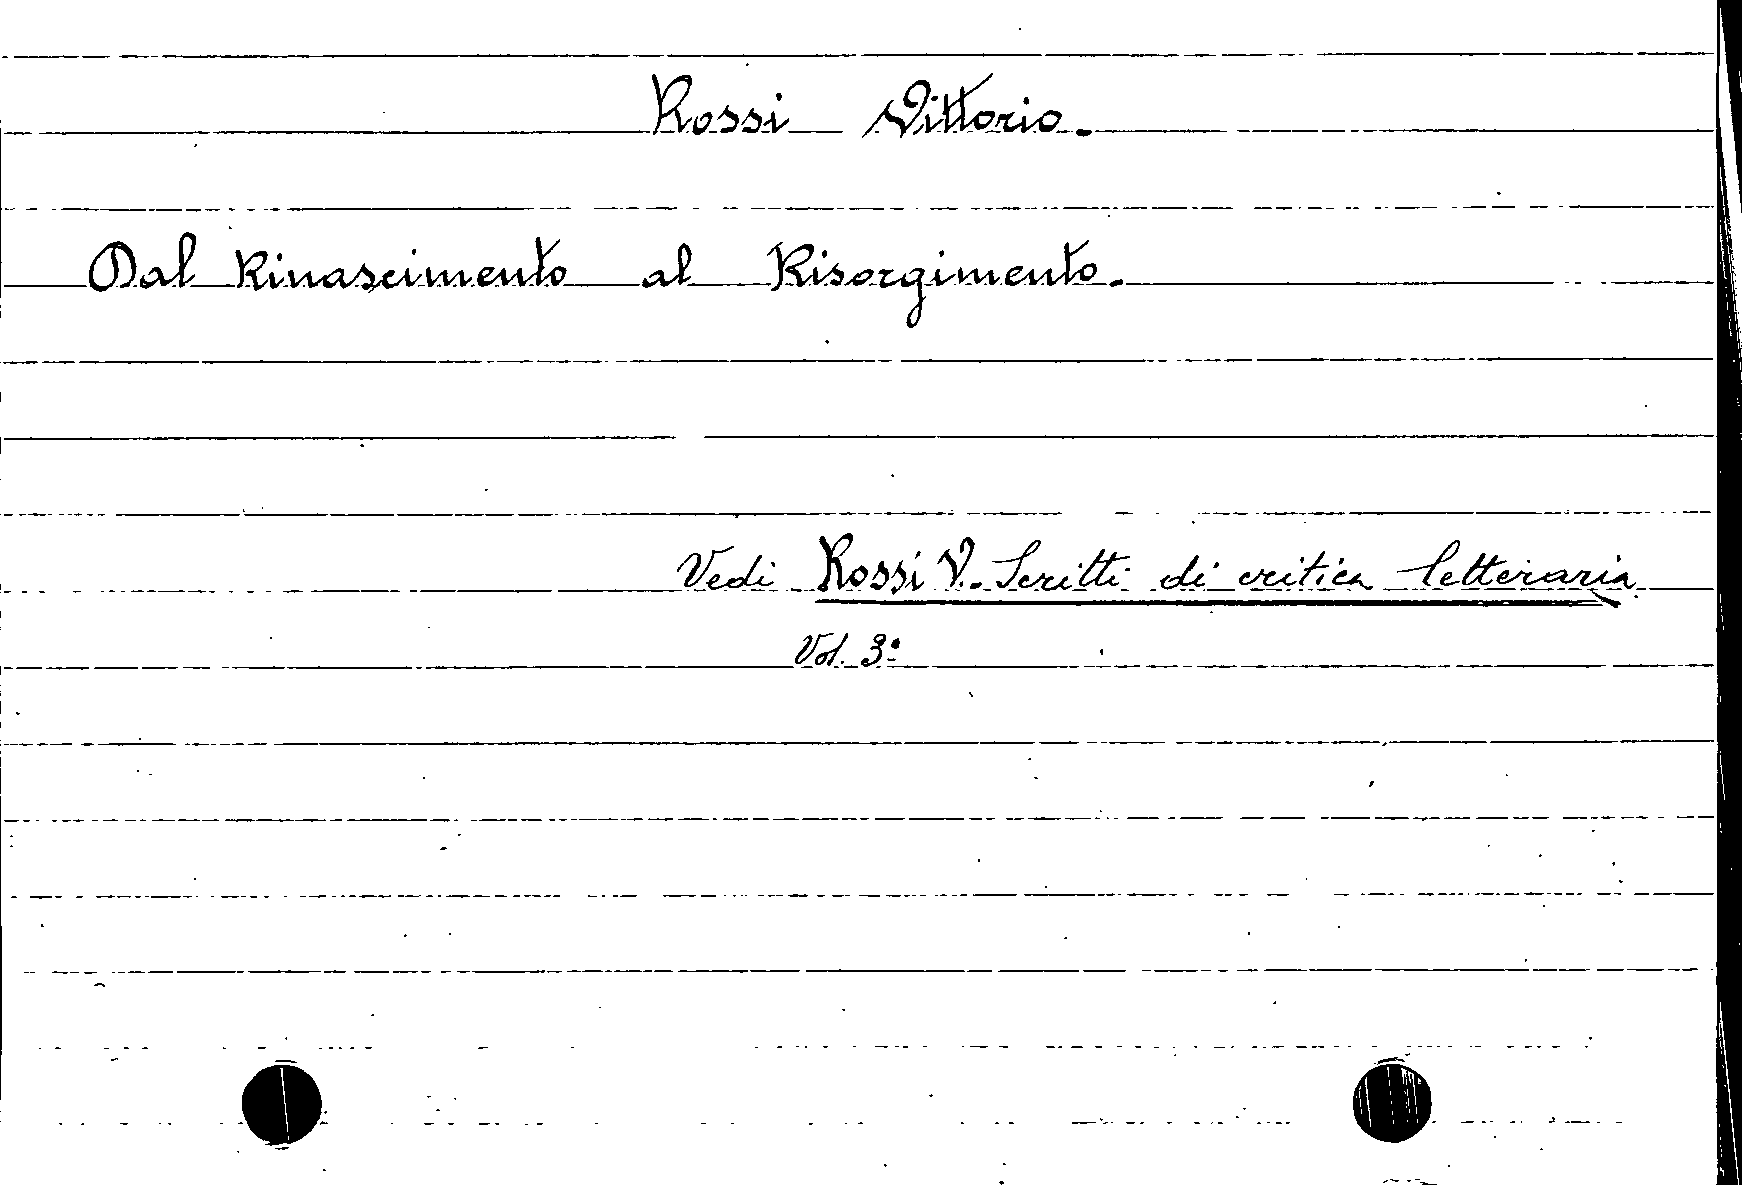 Rossi Vittorio.
Dal Rinascimento al Risorgimento.
Vedi Rossi V. - Scritti di critica letteraria
Vol. 3º